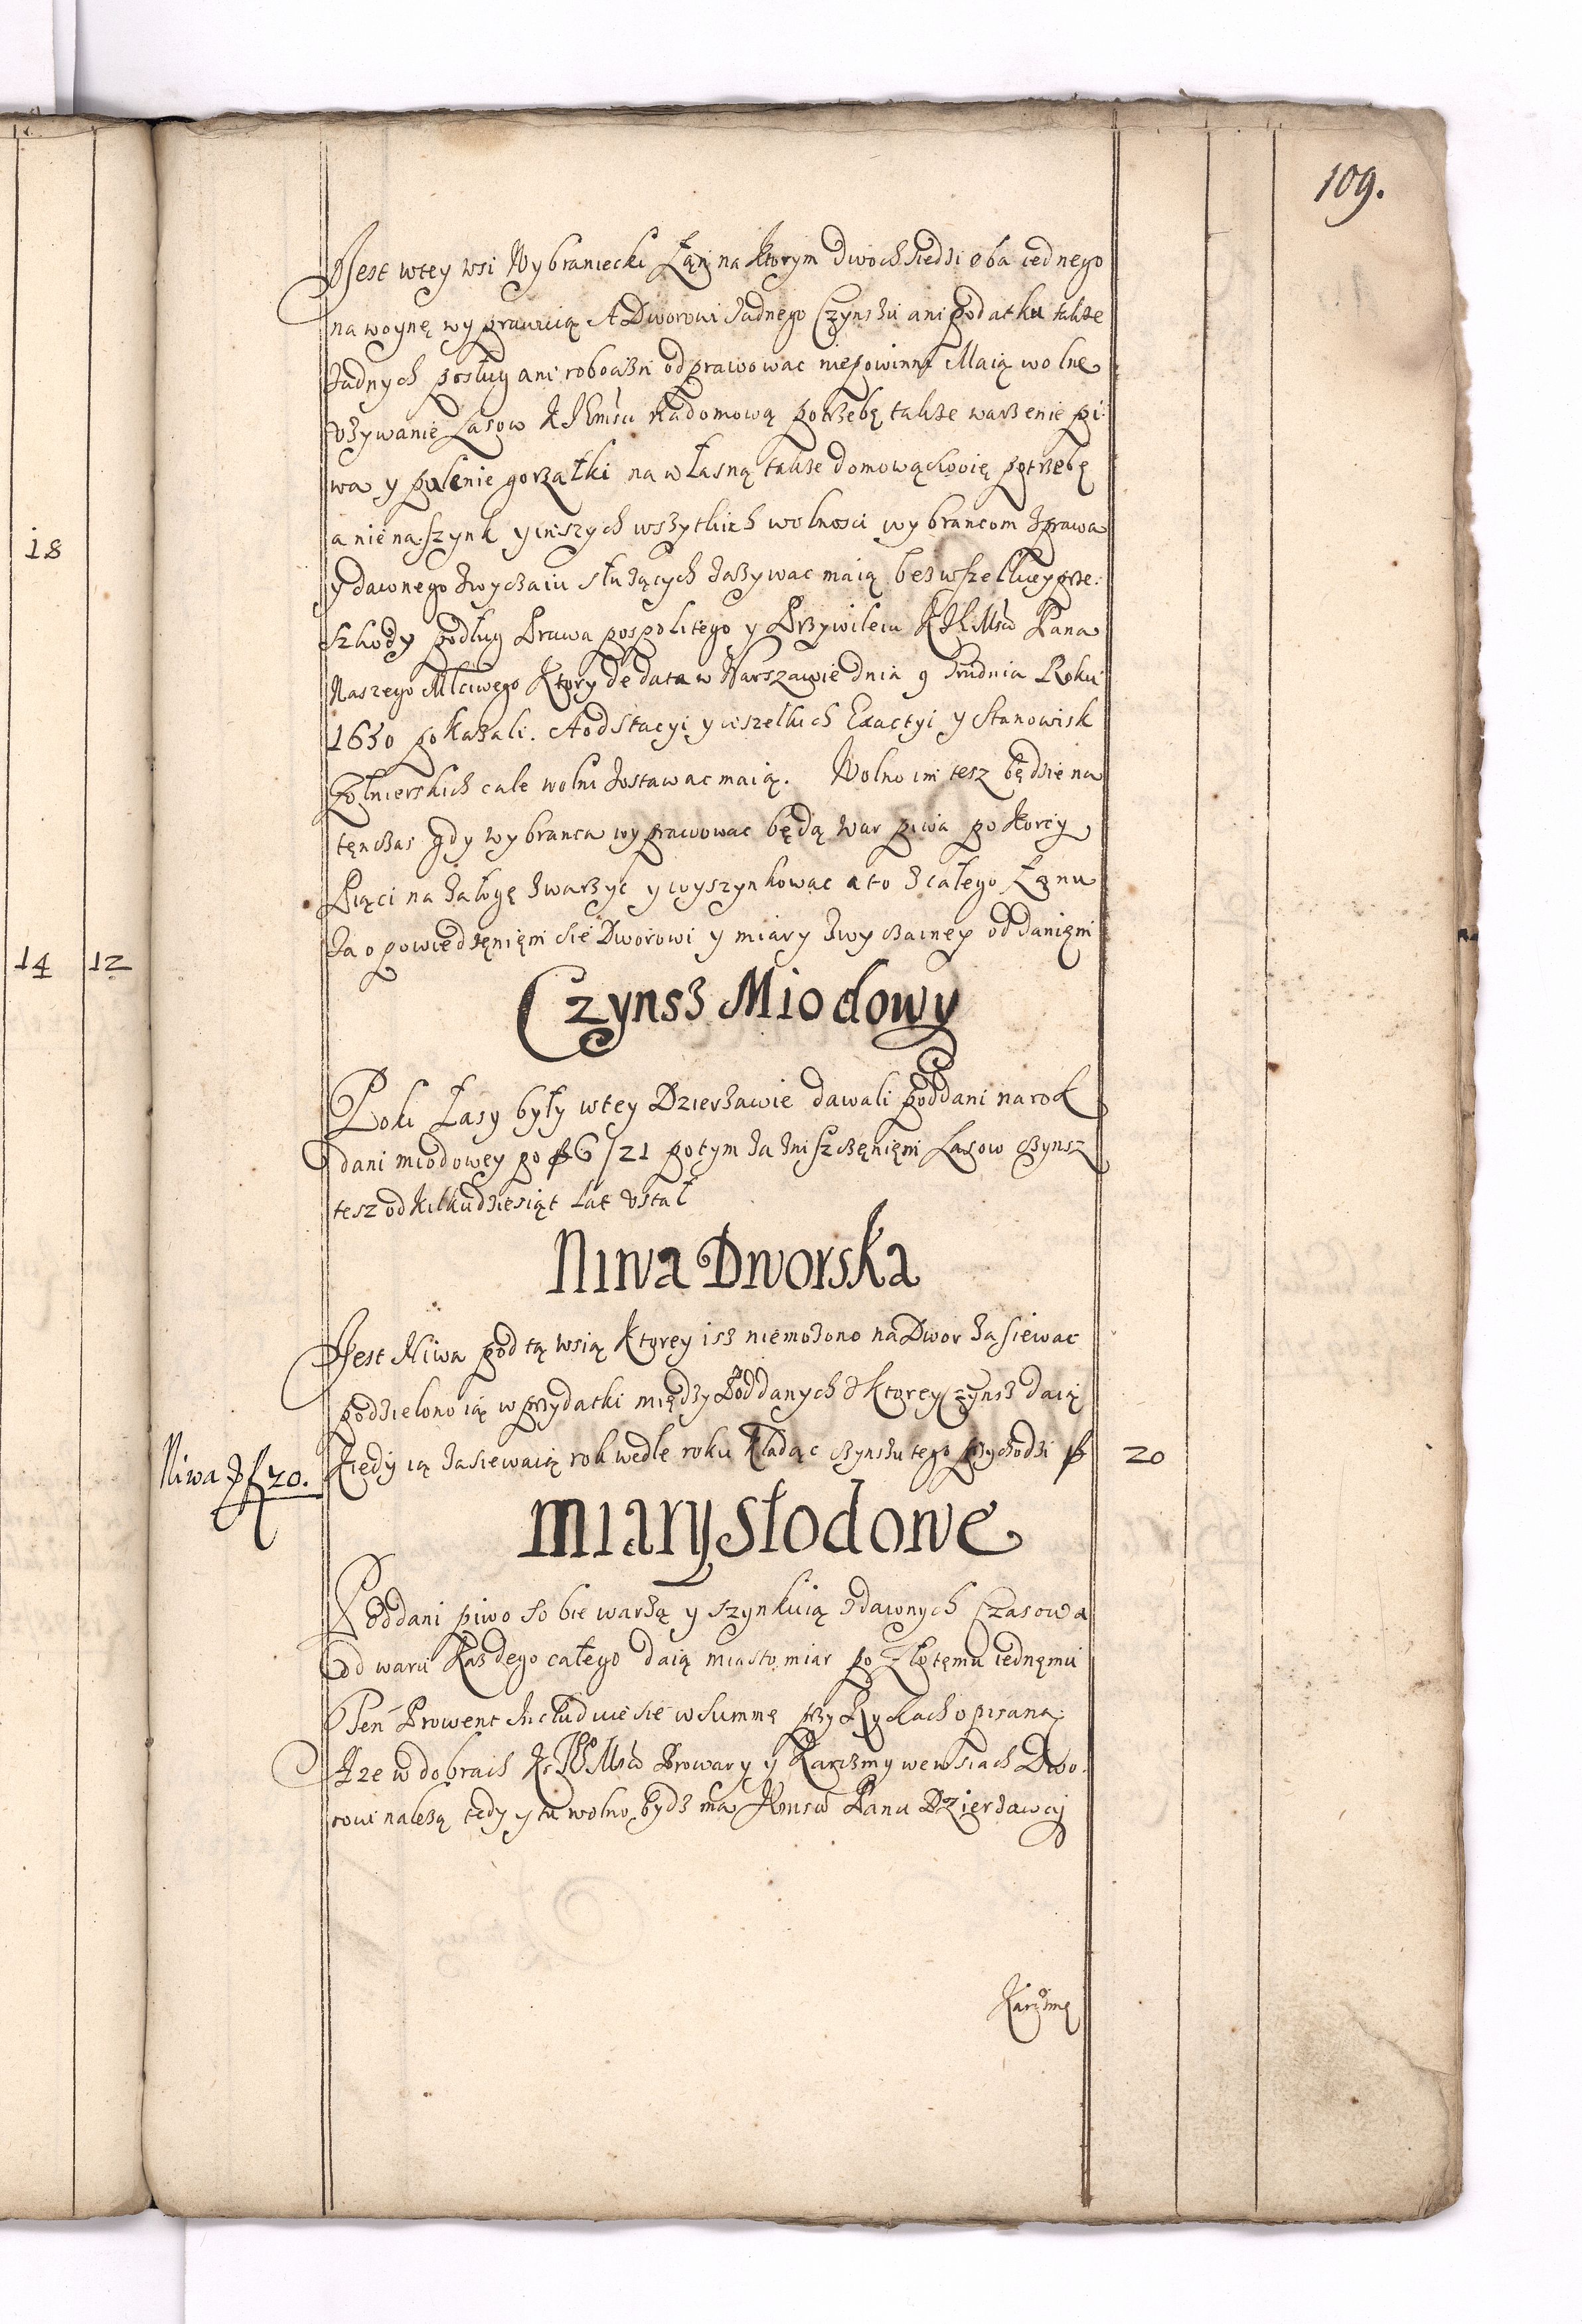 109.
Jest wtey wsi Wybraniecki Łąn na Ktorym dwoch siedzi oba iednego
na woynę wyprawuią A Dworowi żadnego Czynszu ani podatku także
żadnych posług ani robocizn odprawowac niepowinni Maią wolne
vżywanie Lasow na domową potrzebę także warzenie pi:
wa y palenie gorzałki na własną także domową potrzebę
a nie na szynk y inszych wszytkich wolnosci wybrancom zprawa
y dawnego zwyczaiu służących zażywac maią bez wszelkiey prze:
szkody podług Prawa pospolitego y Przywileiu Pana
Naszego Mciwego Ktory de data w Warszawie dnia 9 Grudnia Roku
1650 pokazali. A od Stacyi y wszelkich Exactyi y Stanowisk
Zołnierskich cale wolni zostawac maią. Wolno im tesz będzie na
tęnczas gdy wybranca wyprawowac będą War piwa po Korcy
Piąci na załogę zwarzyc y wyszynkowac a to z całego Łąnu
za opowiedzęnięm sie Dworowi y miary zwyczainey oddanięm
Czynsz Miodowy
Poki Lasy były wtey Dzierzawie dawali poddani na rok
dani miodowey po f 6/21 potym za zniszczęnięm Lasow czynsz
tesz od kilkudziesiąt Lat vstał
Niwa Dworska
Jest Niwa pod tą wsią Ktorey isz niemożono na Dwor zasiewac
podzielono ią w przydatki między Poddanych z Ktorey czynsz daią
Kiedy ią zasiewaią rok wedle roku Kładąc czynszu tego przychodzi f
20
Niwa f 20.
Miary Słodowe
Poddani piwo sobie warzą y szynkuią zdawnych Czasow a
od waru Każdego całego daią miasto miar po Złotęmu iednęmu
Ten Prowent Includuie sie w Summę przy Rykach opisaną
A ze w dobrach Browary y Karczmy we wsiach Dwo:
rowi należą tedy y tu wolno bydz ma Panu Dzierzawcy
Karczmę
18
14 12